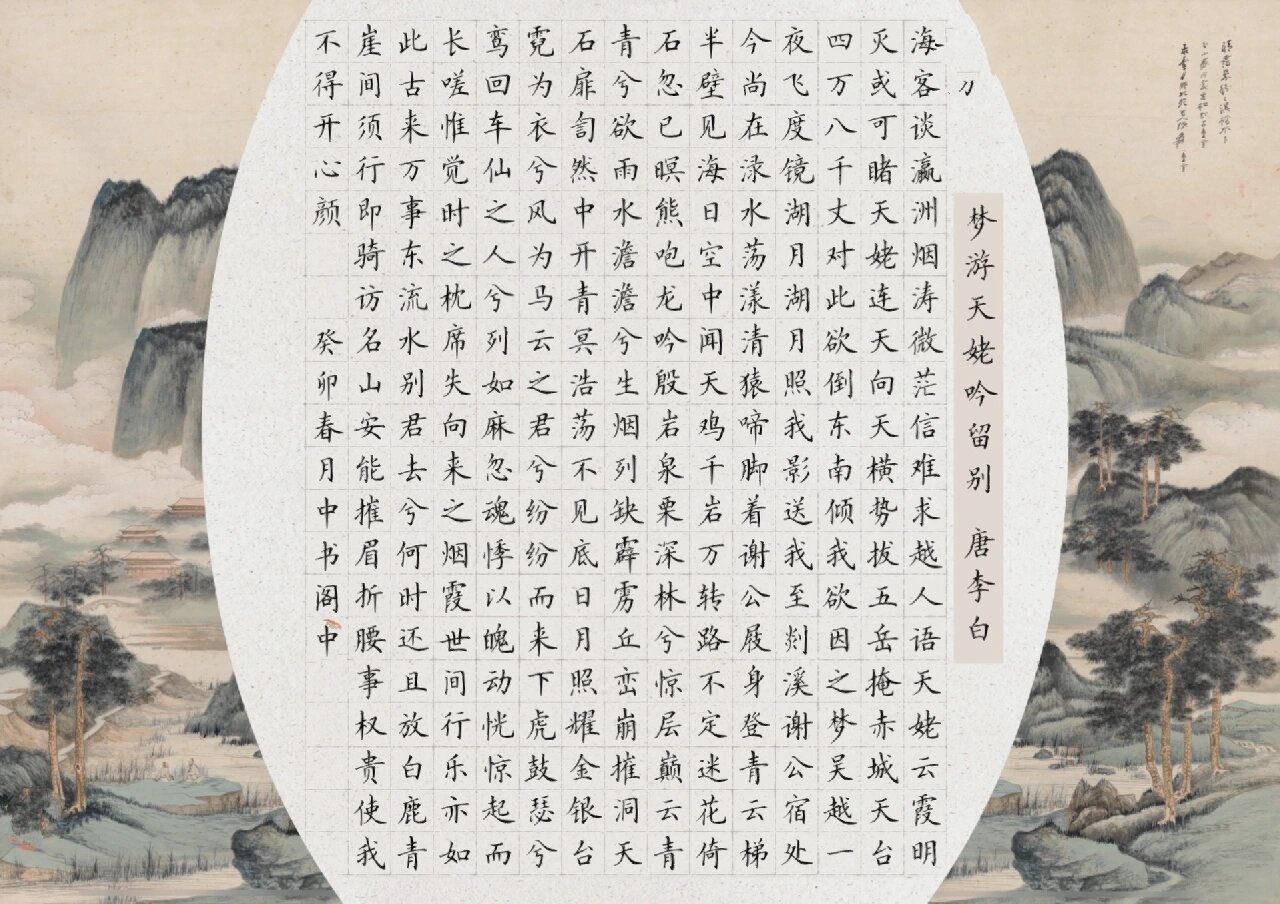 梦游天姥吟留别 唐李白
海客谈瀛洲烟涛微茫信难求越人语天姥云霞明
灭或可睹天姥连天向天横势拔五岳掩赤城天台
四万八千丈对此欲倒东南倾我欲因之梦吴越一
夜飞度镜湖月湖月照我影送我至剡溪谢公宿处
今尚在渌水荡漾清猿啼脚着谢公屐身登青云梯
半壁见海日空中闻天鸡千岩万转路不定迷花倚
石忽已暝熊咆龙吟殷岩泉栗深林兮惊层巅云青
青兮欲雨水澹澹兮生烟列缺霹雳丘峦崩摧洞天
石扉訇然中开青冥浩荡不见底日月照耀金银台
霓为衣兮风为马云之君兮纷纷而来下虎鼓瑟兮
鸾回车仙之人兮列如麻忽魂悸以魄动恍惊起而
长嗟惟觉时之枕席失向来之烟霞世间行乐亦如
此古来万事东流水别君去兮何时还且放白鹿青
崖间须行即骑访名山安能摧眉折腰事权贵使我
不得开心颜 癸卯春月中书阁中